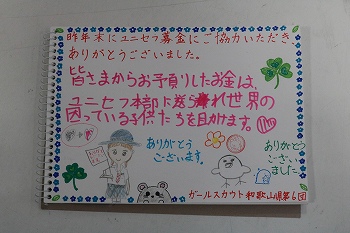 昨年末にユニセフ募金にご協力いただき、
ありがとうございました。
皆さまからお預りしたお金は、
ユニセフ本部に送られ世界の
困っている子供たちを助けます。
ありがとう
ございます。
ありがとう
ござい
ました
ガールスカウト和歌山県第6団